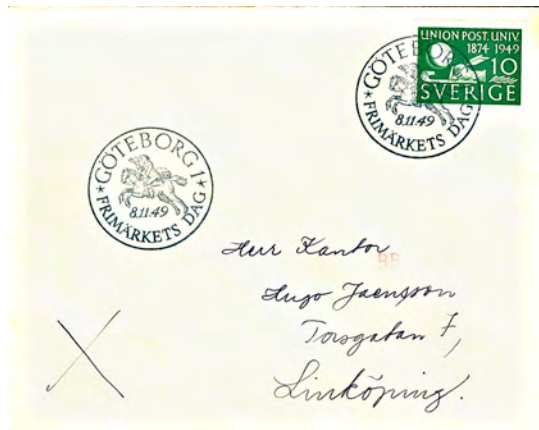 UNION POST. UNIV.
1874 1949
10
SVERIGE
GÖTEBORG
★ FRIMÄRKETS DAG
8.11.49
GÖTEBORG 1
★ FRIMÄRKETS DAG ★
8.11.49
Herr Kantor
BB
Hugo Jaensson
Torsgatan 7,
Linköping.